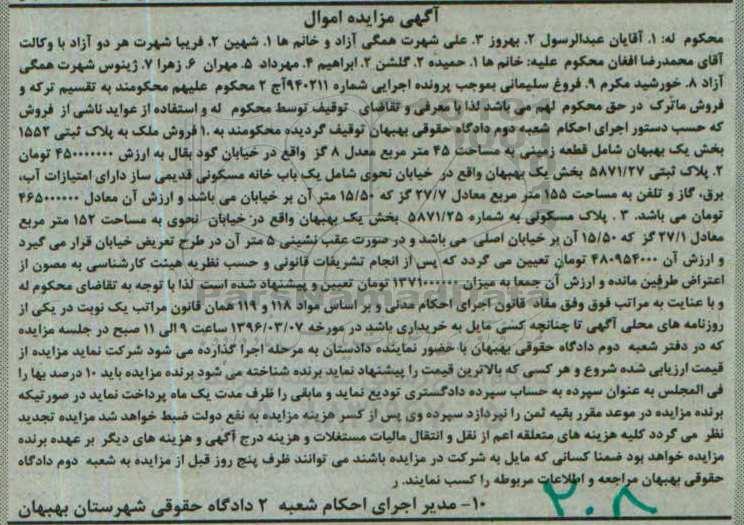 آگهی مزایده اموال
محکوم له: ۱. آقایان عبدالرسول ۲. بهروز ۳. علی شهرت همگی آزاد و خانم ها ۱. شهین ۲. فریبا شهرت هر دو آزاد با وکالت
آقای محمدرضا افغان محکوم علیه: خانم ها ۱. حمیده ۲. گلشن ۲. ابراهیم ۴. مهرداد ۵. مهران ۶. زهرا ۷. ژینوس شهرت همگی
آزاد ۸. خورشید مکرم ۹. فروغ سلیمانی بموجب پرونده اجرایی شماره ۹۴۰۲۱۱آج ۲ محکوم علیهم محکومند به تقسیم ترکه و
فروش ماترک در حق محکوم لهم می باشد لذا با معرفی و تقاضای توقیف توسط محکوم له و استفاده از عواید ناشی از فروش
که حسب دستور اجرای احکام شعبه دوم دادگاه حقوقی بهبهان توقیف گردیده محکومند به ۱. فروش ملک به پلاک ثبتی ۱۵۵۳
بخش یک بهبهان شامل قطعه زمینی به مساحت ۴۵ متر مربع معدل ۸ گز واقع در خیابان گود بقال به ارزش ۴۵۰۰۰۰۰۰۰ تومان
۲. پلاک ثبتی ۵۸۷۱/۲۷ بخش یک بهبهان واقع در خیابان نحوی شامل یک باب خانه مسکونی قدیمی ساز دارای امتیازات آب،
برق، گاز و تلفن به مساحت ۱۵۵ متر مربع معادل ۲۷/۷ گز که ۱۵/۵۰ متر آن بر خیابان می باشد و ارزش آن معادل ۴۶۵۰۰۰۰۰۰
تومان می باشد. ۳ . پلاک مسکونی به شماره ۵۸۷۱/۲۵ بخش یک بهبهان واقع در خیابان نحوی به مساحت ۱۵۲ متر مربع
معادل ۲۷/۱ گز که ۱۵/۵۰ آن بر خیابان اصلی می باشد و در صورت عقب نشینی ۵ متر آن در طرح تعریض خیابان قرار می گیرد
و ارزش آن ۴۸۰۹۵۴۰۰۰ تومان تعیین می گردد که پس از انجام تشریفات قانونی و حسب نظریه هیئت کارشناسی به مصون از
اعتراض طرفین مانده و ارزش آن جمعا به میزان تومان تعیین و پیشنهاد شده است لذا با توجه به تقاضای محکوم له
و با عنایت به مراتب فوق وفق مفاد قانون اجرای احکام مدنی و بر اساس مواد ۱۱۸ و ۱۱۹ همان قانون مراتب یک نوبت در یکی از
روزنامه های محلی آگهی تا چنانچه کسی مایل به خریداری باشد در مورخه ۱۳۹۶/۰۳/۰۷ ساعت ۹ الی ۱۱ صبح در جلسه مزایده
که در دفتر شعبه دوم دادگاه حقوقی بهبهان با حضور نماینده دادستان به مرحله اجرا گذارده می شود شرکت نماید مزایده از
قیمت ارزیابی شده شروع و هر کسی که بالاترین قیمت را پیشنهاد نماید برنده شناخته می شود برنده مزایده باید ۱۰ درصد بها را
فی المجلس به عنوان سپرده به حساب سپرده دادگستری تودیع نماید و مابقی را ظرف مدت یک ماه پرداخت نماید در صورتیکه
برنده مزایده در موعد مقرر بقیه ثمن را نپردازد سپرده وی پس از کسر هزینه مزایده به نفع دولت ضبط خواهد شد مزایده تجدید
نظر می گردد کلیه هزینه های متعلقه اعم از نقل و انتقال مالیات مستغلات و هزینه درج آگهی و هزینه های دیگر بر عهده برنده
مزایده خواهد بود ضمنا کسانی که مایل به شرکت در مزایده باشند می توانند ظرف پنج روز قبل از مزایده به شعبه دوم دادگاه
حقوقی بهبهان مراجعه و اطلاعات مربوطه را کسب نمایند. ر
۱۰- مدیر اجرای احکام شعبه ۲ دادگاه حقوقی شهرستان بهبهان
۲۰۸